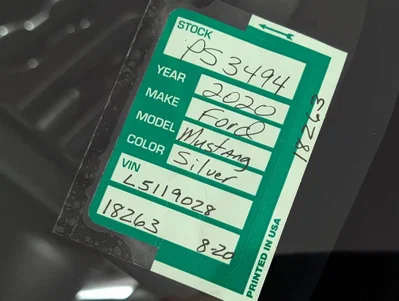 STOCK
PS3494
YEAR 2020
MAKE Ford
MODEL Mustang
COLOR Silver
VIN
L5119028
18263 8-20
18263
PRINTED IN USA